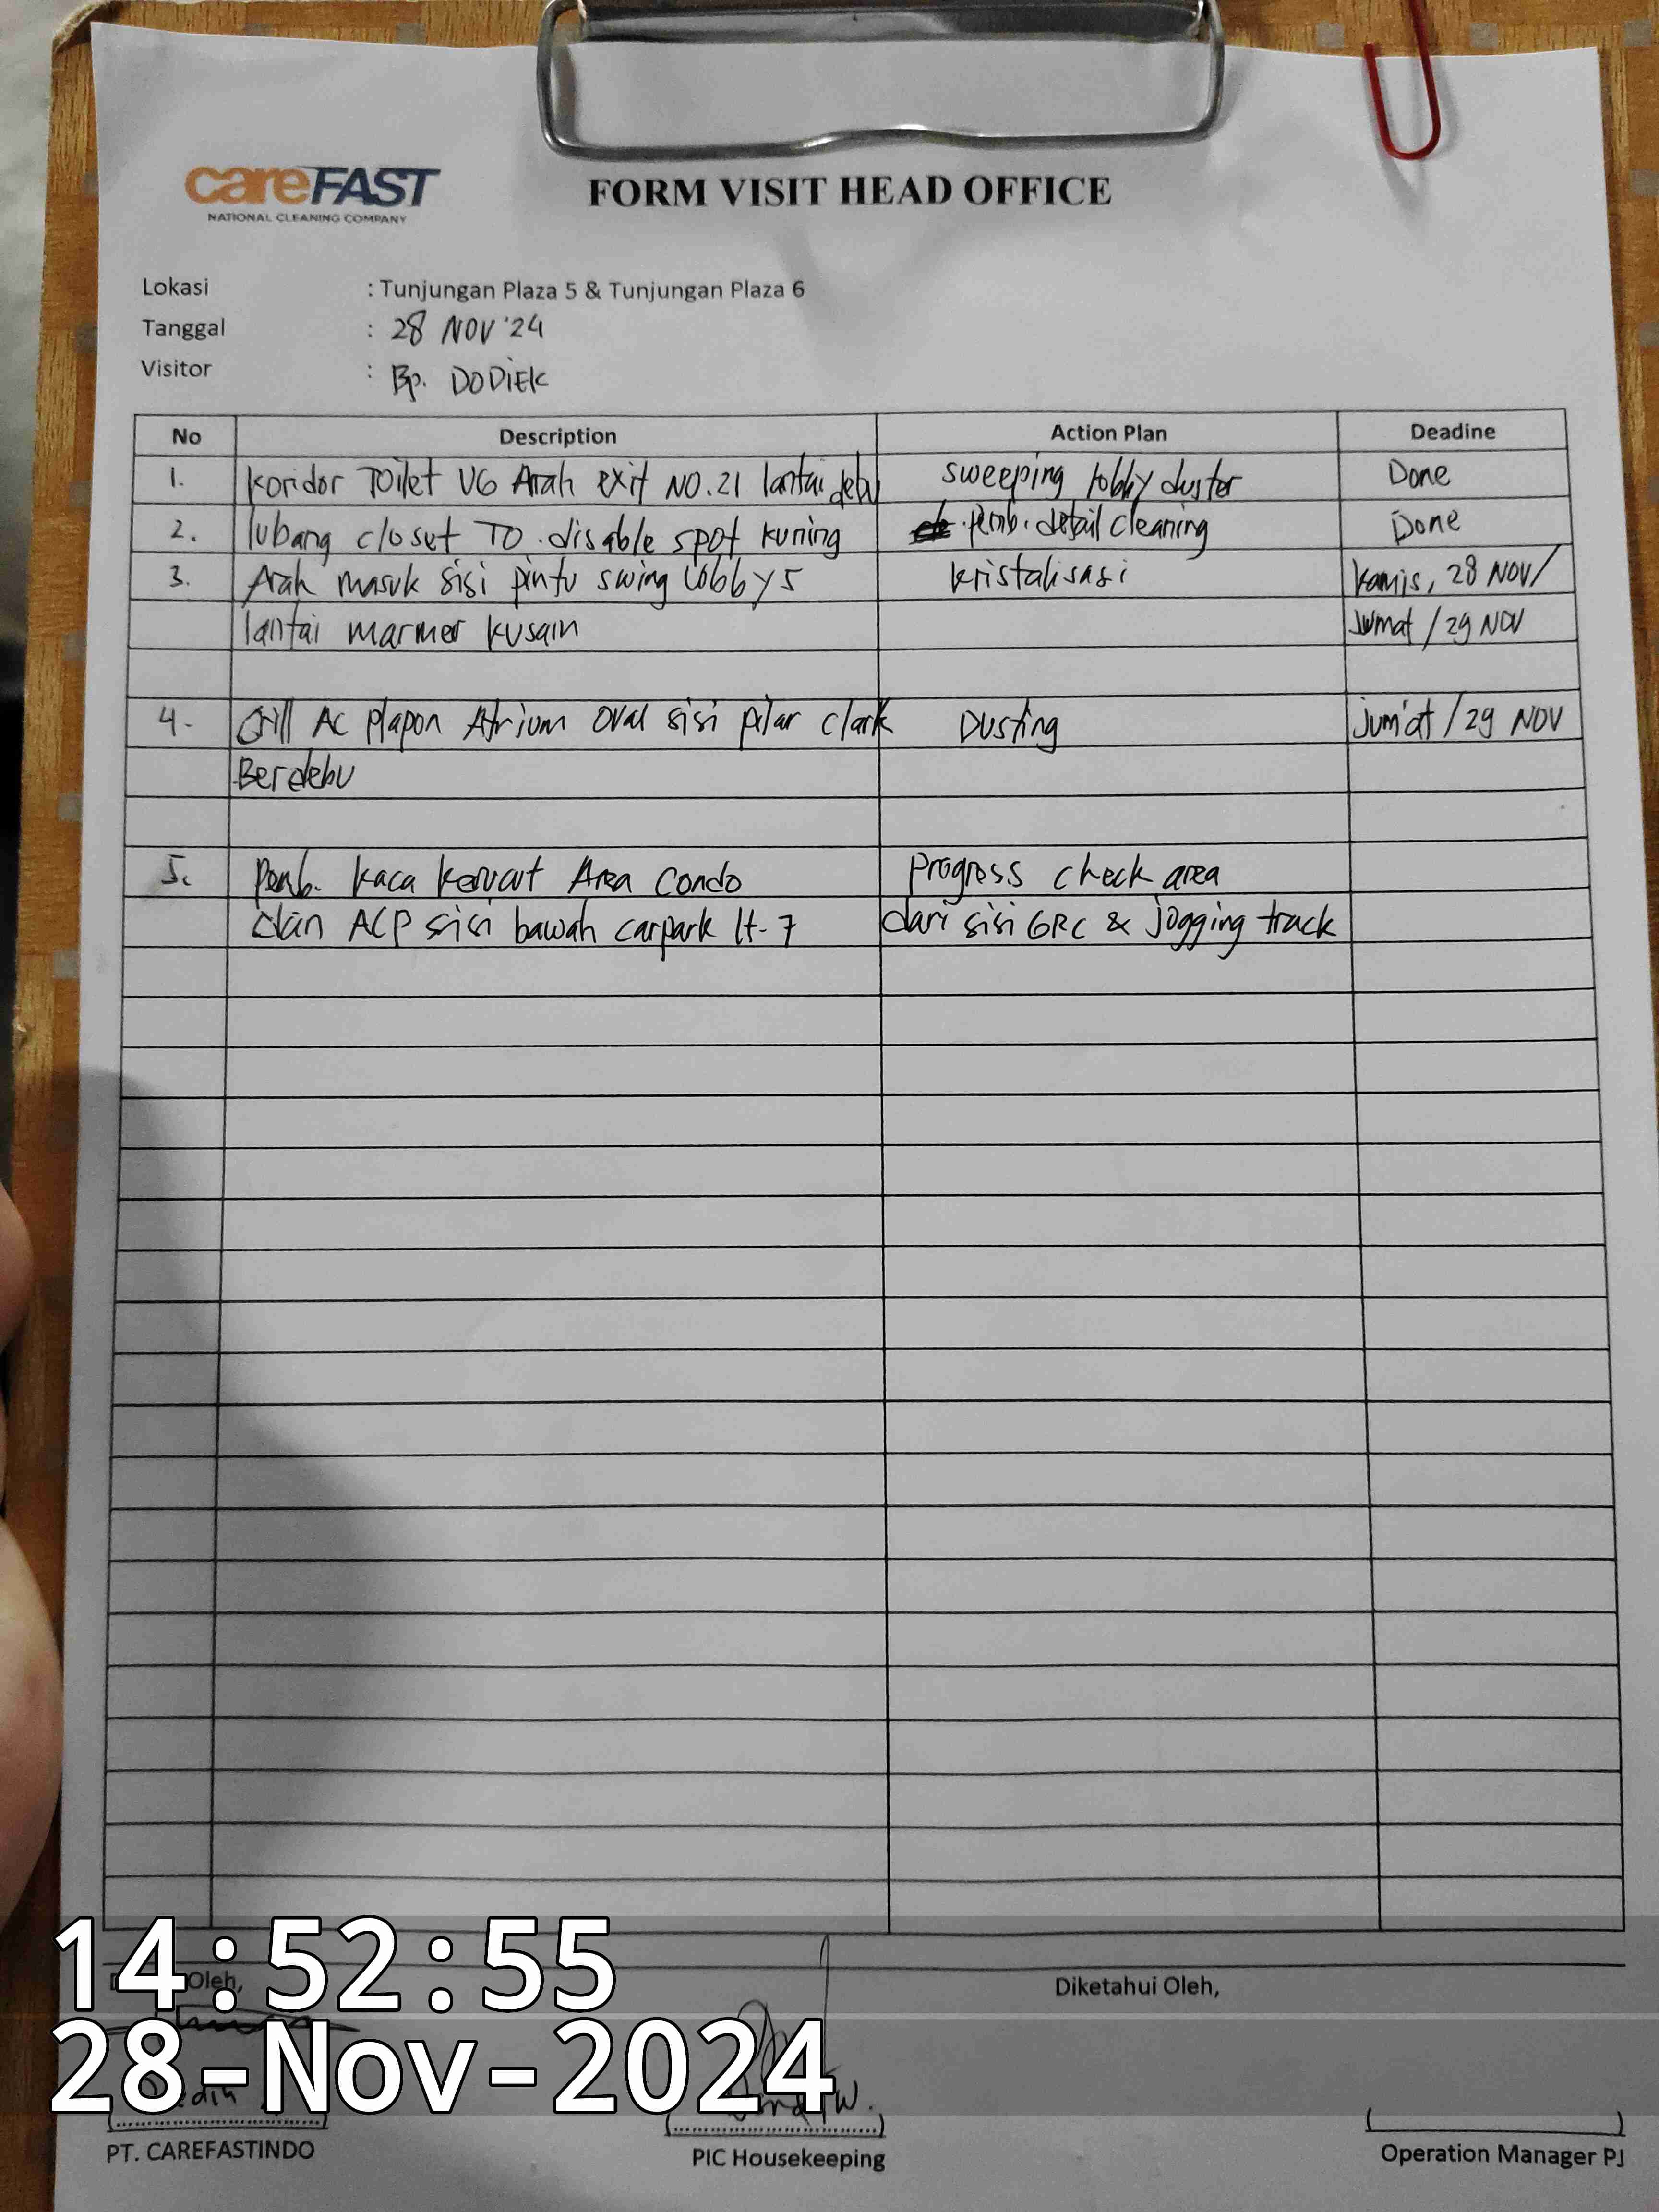 careFAST
NATIONAL CLEANING COMPANY
FORM VISIT HEAD OFFICE
Lokasi : Tunjungan Plaza 5 & Tunjungan Plaza 6
Tanggal : 28 NOV '24
Visitor : Bp. DODiEK
No Description Action Plan Deadine
1. koridor Toilet UG Arah exit NO.21 lantai debu sweeping lobby duster Done
2. lubang closet TO. disable spot kuning pemb. detail cleaning Done
3. Arah masuk sisi pintu swing lobby 5 kristalisasi kamis, 28 NOV/
lantai marmer kusam Jumat / 29 NOV
4. Grill AC plapon Atrium oval sisi pilar clark Dusting jum'at / 29 NOV
Berdebu
5. Pemb. kaca kerucut Area Condo Progress check area
dan ACP sisi bawah carpark lt-7 dari sisi GRC & jogging track
14:52:55
Oleh, Diketahui Oleh,
28-Nov-2024
PT. CAREFASTINDO PIC Housekeeping Operation Manager PJ